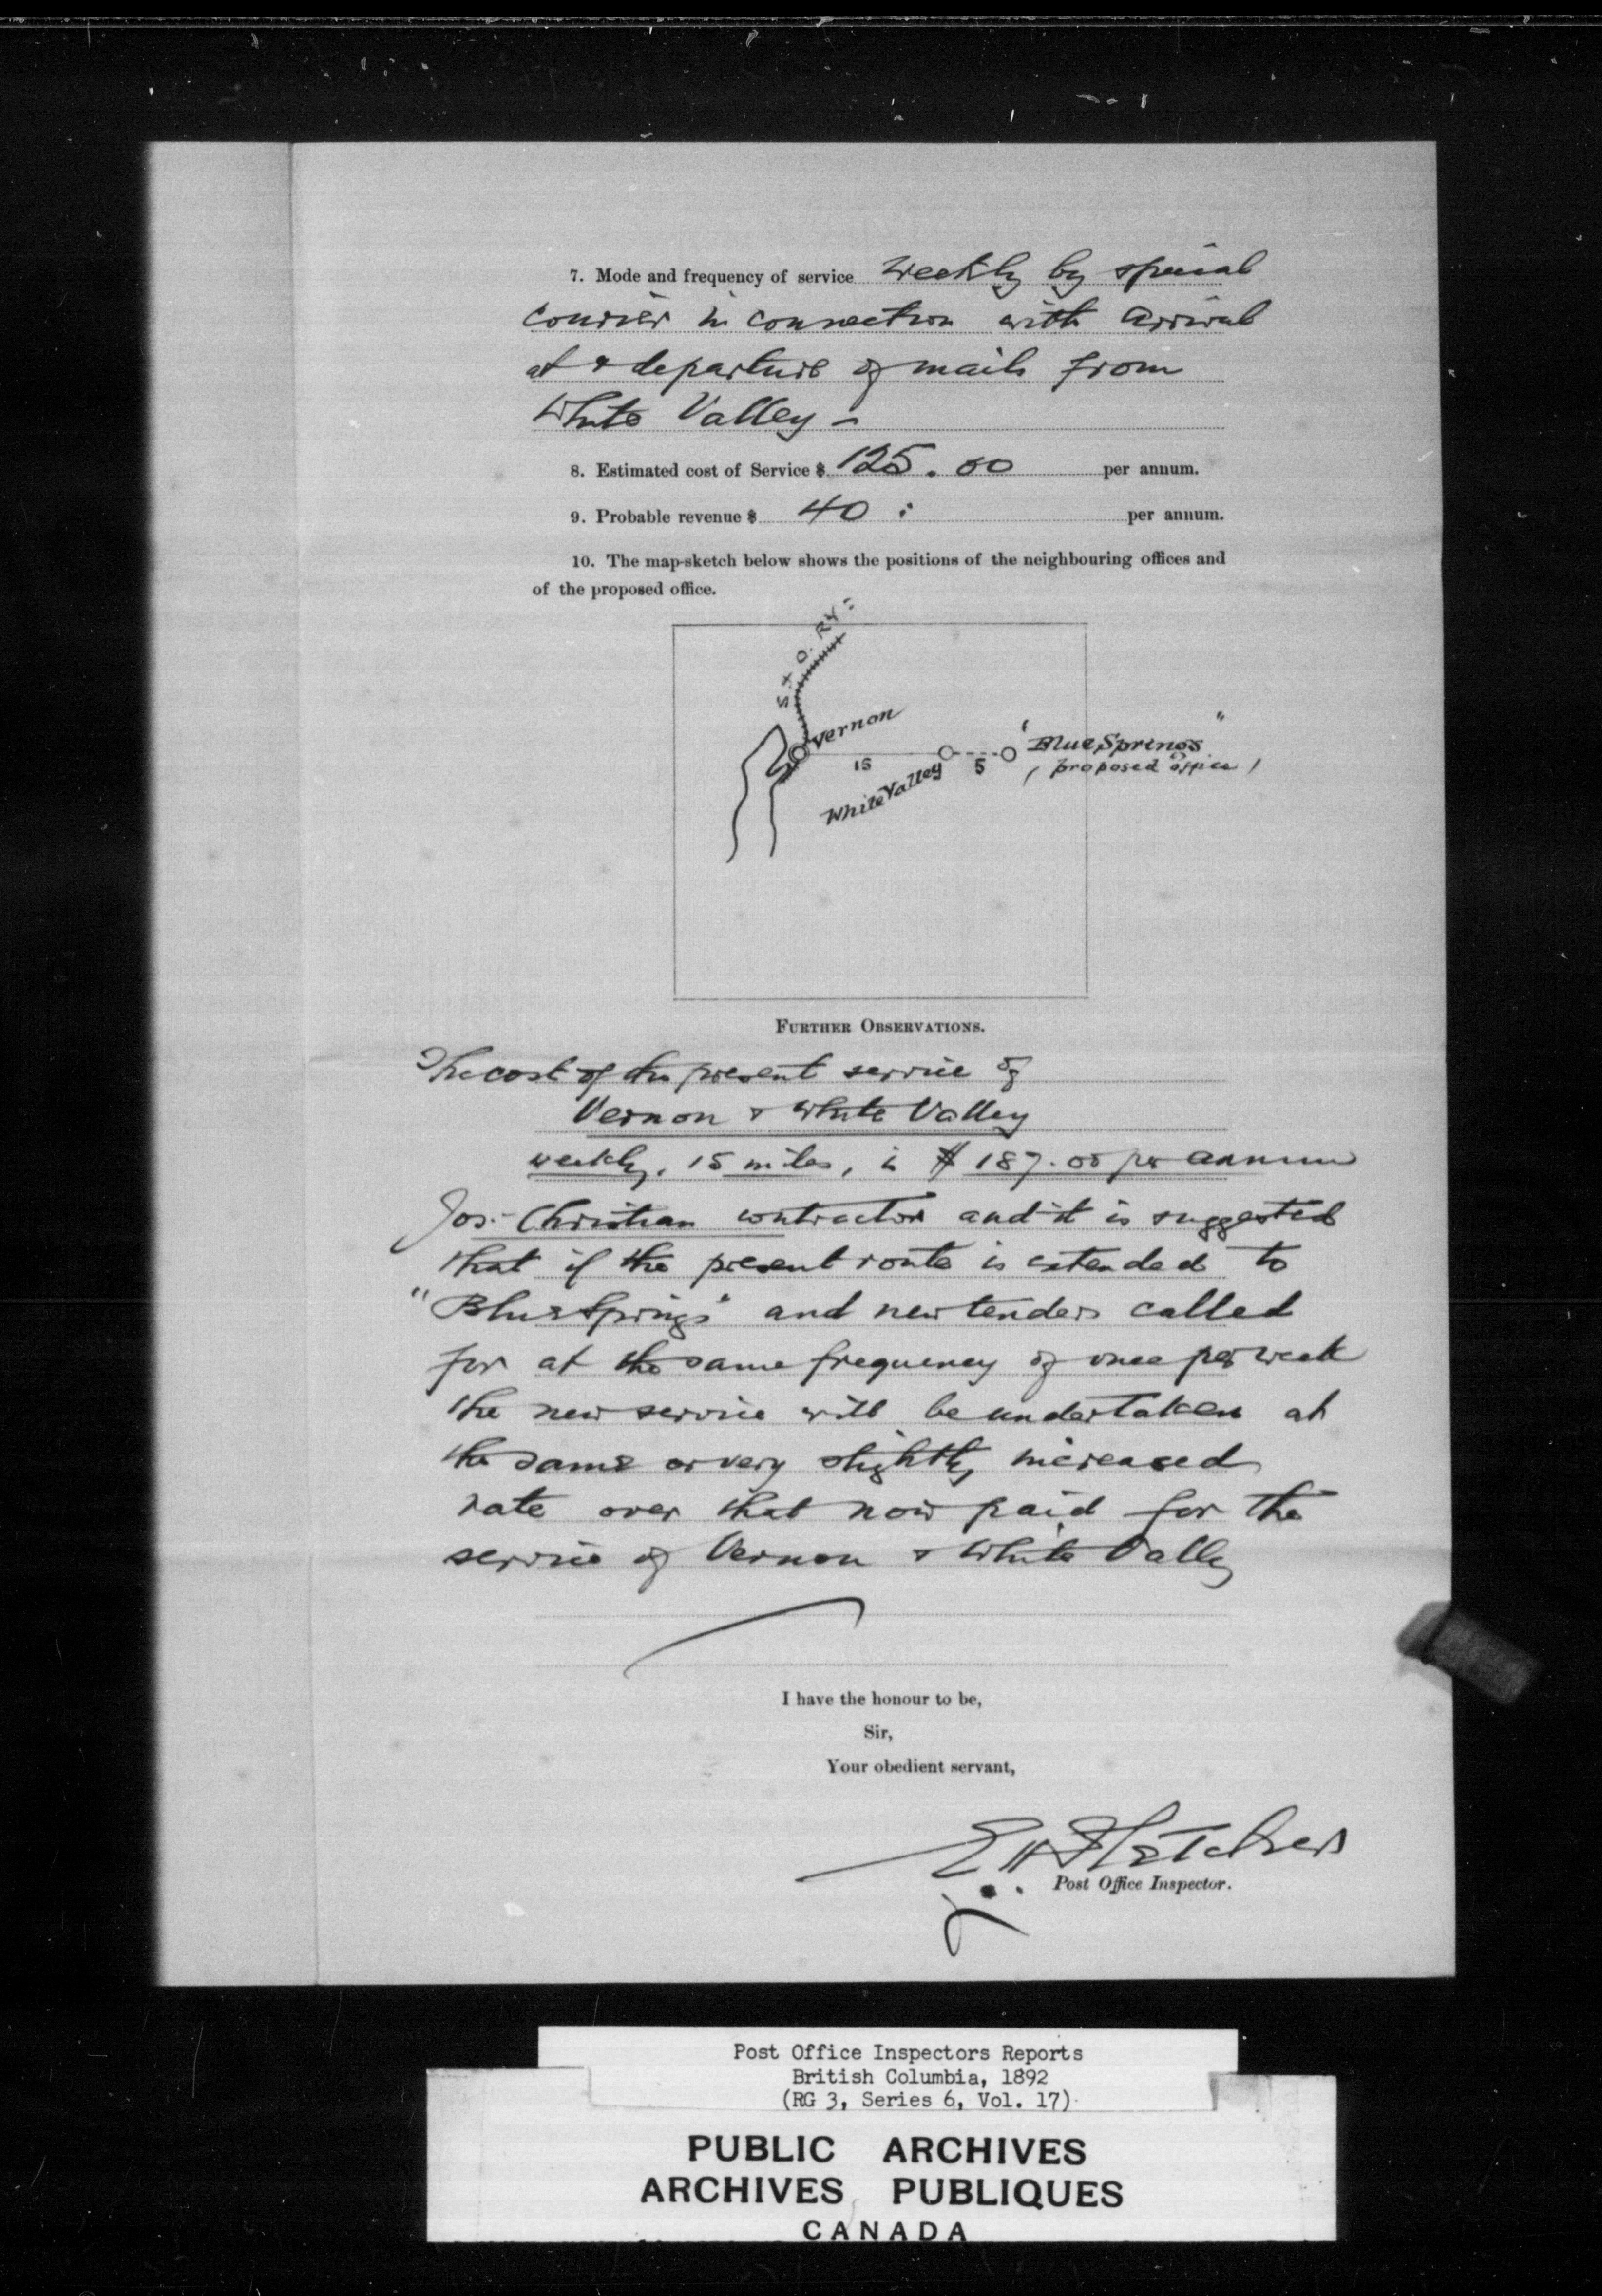 7. Mode and frequency of service Weekly by special
courier in connection with arrival
at & departure of mails from
White Valley –
8. Estimated cost of Service $ 125.00 per annum.
9. Probable revenue $ 40 : per annum.
10. The map-sketch below shows the positions of the neighbouring offices and
of the proposed office.
S. & O. Ry.
Vernon
15
White Valley
5
"Blue Springs"
(proposed office)
FURTHER OBSERVATIONS.
The cost of the present service of
Vernon & White Valley
weekly, 15 miles, is $187.00 per annum
Jos. Christian contractor and it is suggested
that if the present route is extended to
"Blue Springs" and new tenders called
for at the same frequency of once per week
the new service will be undertaken at
the same or very slightly increased
rate over that now paid for the
service of Vernon & White Valley
I have the honour to be,
Sir,
Your obedient servant,
E H Fletcher
Post Office Inspector.
Post Office Inspectors Reports
British Columbia, 1892
(RG 3, Series 6, Vol. 17)
PUBLIC ARCHIVES
ARCHIVES PUBLIQUES
CANADA